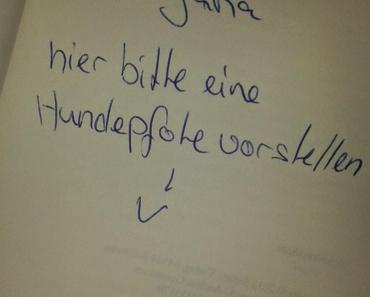 Jana
hier bitte eine
Hundepfote vorstellen